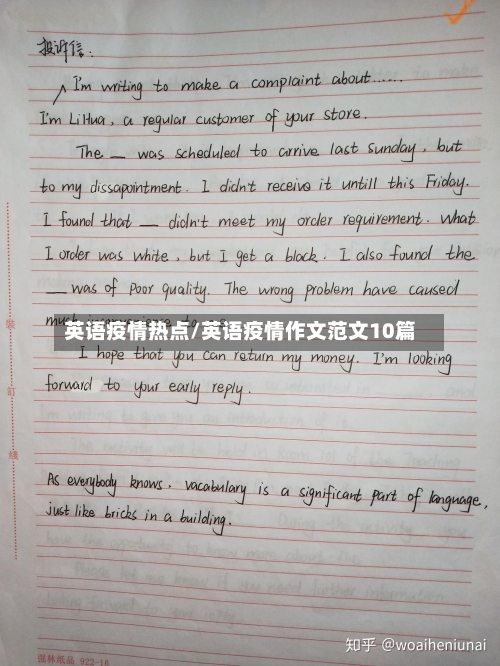 投诉信：
I'm writing to make a complaint about......
I'm LiHua, a regular customer of your store.
The __ was scheduled to arrive last Sunday, but
to my dissapointment. I didn't receive it untill this Friday.
I found that __ didn't meet my order requirement. What
I order was white, but I get a black. I also found the
__ was of poor quality. The wrong problem have caused
much
英语疫情热点/英语疫情作文范文10篇
I hope that you can return my money. I'm looking
forward to your early reply.
As everybody knows, vacabulary is a significant part of language,
just like bricks in a building.
装
订
线
纸品 922-16
知乎 @woaiheniunai